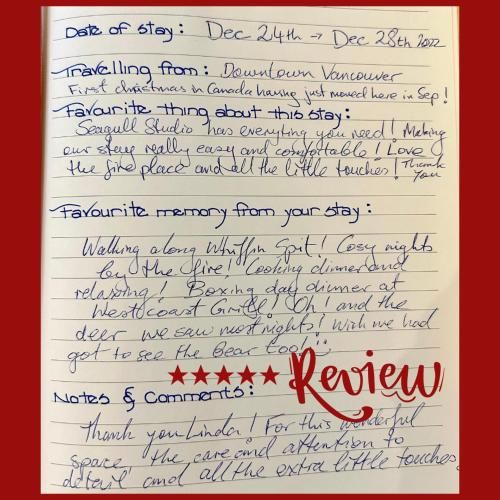 Date of stay: Dec 24th → Dec 28th 2022
Travelling from: Downtown Vancouver
First christmas in Canada having just moved here in Sep!
Favourite thing about this stay:
Seagull Studio has everything you need! Making
our stay really easy and comfortable! Love
the fire place and all the little touches! Thank
you
Favourite memory from your stay:
Walking along Whiffin Spit! Cosy nights
by the fire! Cooking dinner and
relaxing! Boxing day dinner at
West Coast Grill! Oh! and the
deer we saw most nights! Wish we had
got to see the Bear too!
★★★★★ Review
Notes & Comments:
Thank you Linda! For this wonderful
space, the care and attention to
detail and all the extra little touches